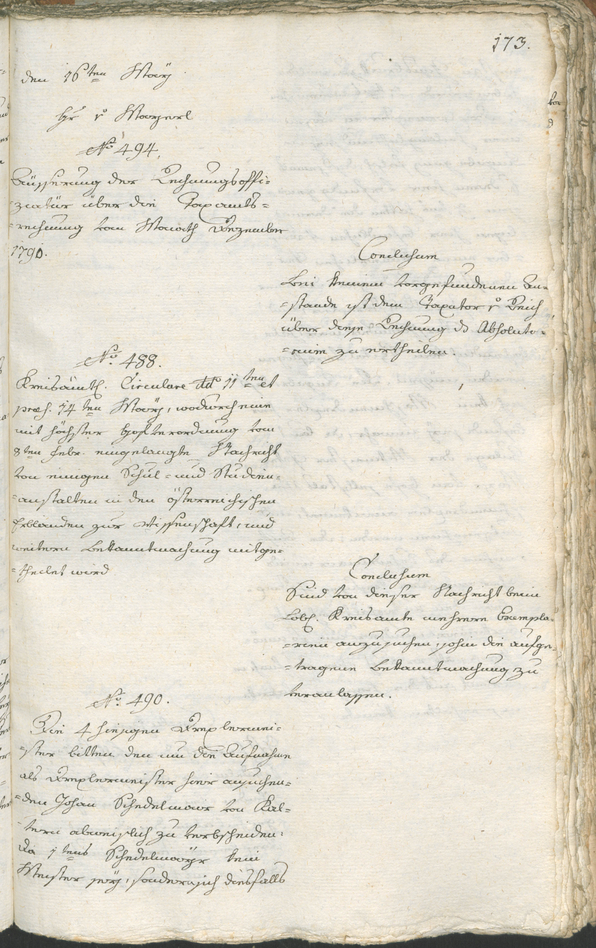 173.
den 16ten May
Hr v Mayrl
No 494.
Äusserung der Rechnungsoffi=
ziatur über die Taxamts=
=rechnung vom Monath Dezember
1790.
Conclusum
bei keinem vorgefundenen An=
=stande ist dem Taxator v Reich
über diese Rechnung ds Absoluto=
=rium zu ertheilen.
No 488.
Kreisämtl. Circulare ddo 11ten et
praes. 14ten May, wodurch eine
mit höchster Hofverordnung vom
8ten Febr. eingelangte Nachricht
von einigen Schul= und Studien=
=anstalten in den österreichischen
Erblanden zur Wissenschaft, und
weitern Bekanntmachung mitge=
=theilet wird
Conclusum
Sind von dieser Nachricht beim
Löbl. Kreisamte mehrere Exempla=
=rien anzusuchen, sohin die aufge=
=tragene Bekanntmachung zu
veranlassen.
No. 490.
Die 4 hiesigen Drexlermei=
=ster bitten den um die Aufnahme
als Drexlermeister hier ansuchen=
=den Johan Schedelmayr von Kal=
=tern abweislich zu verbscheiden:
da 1tens Schedelmayr kein
Meister sey, sondern sich diesfalls